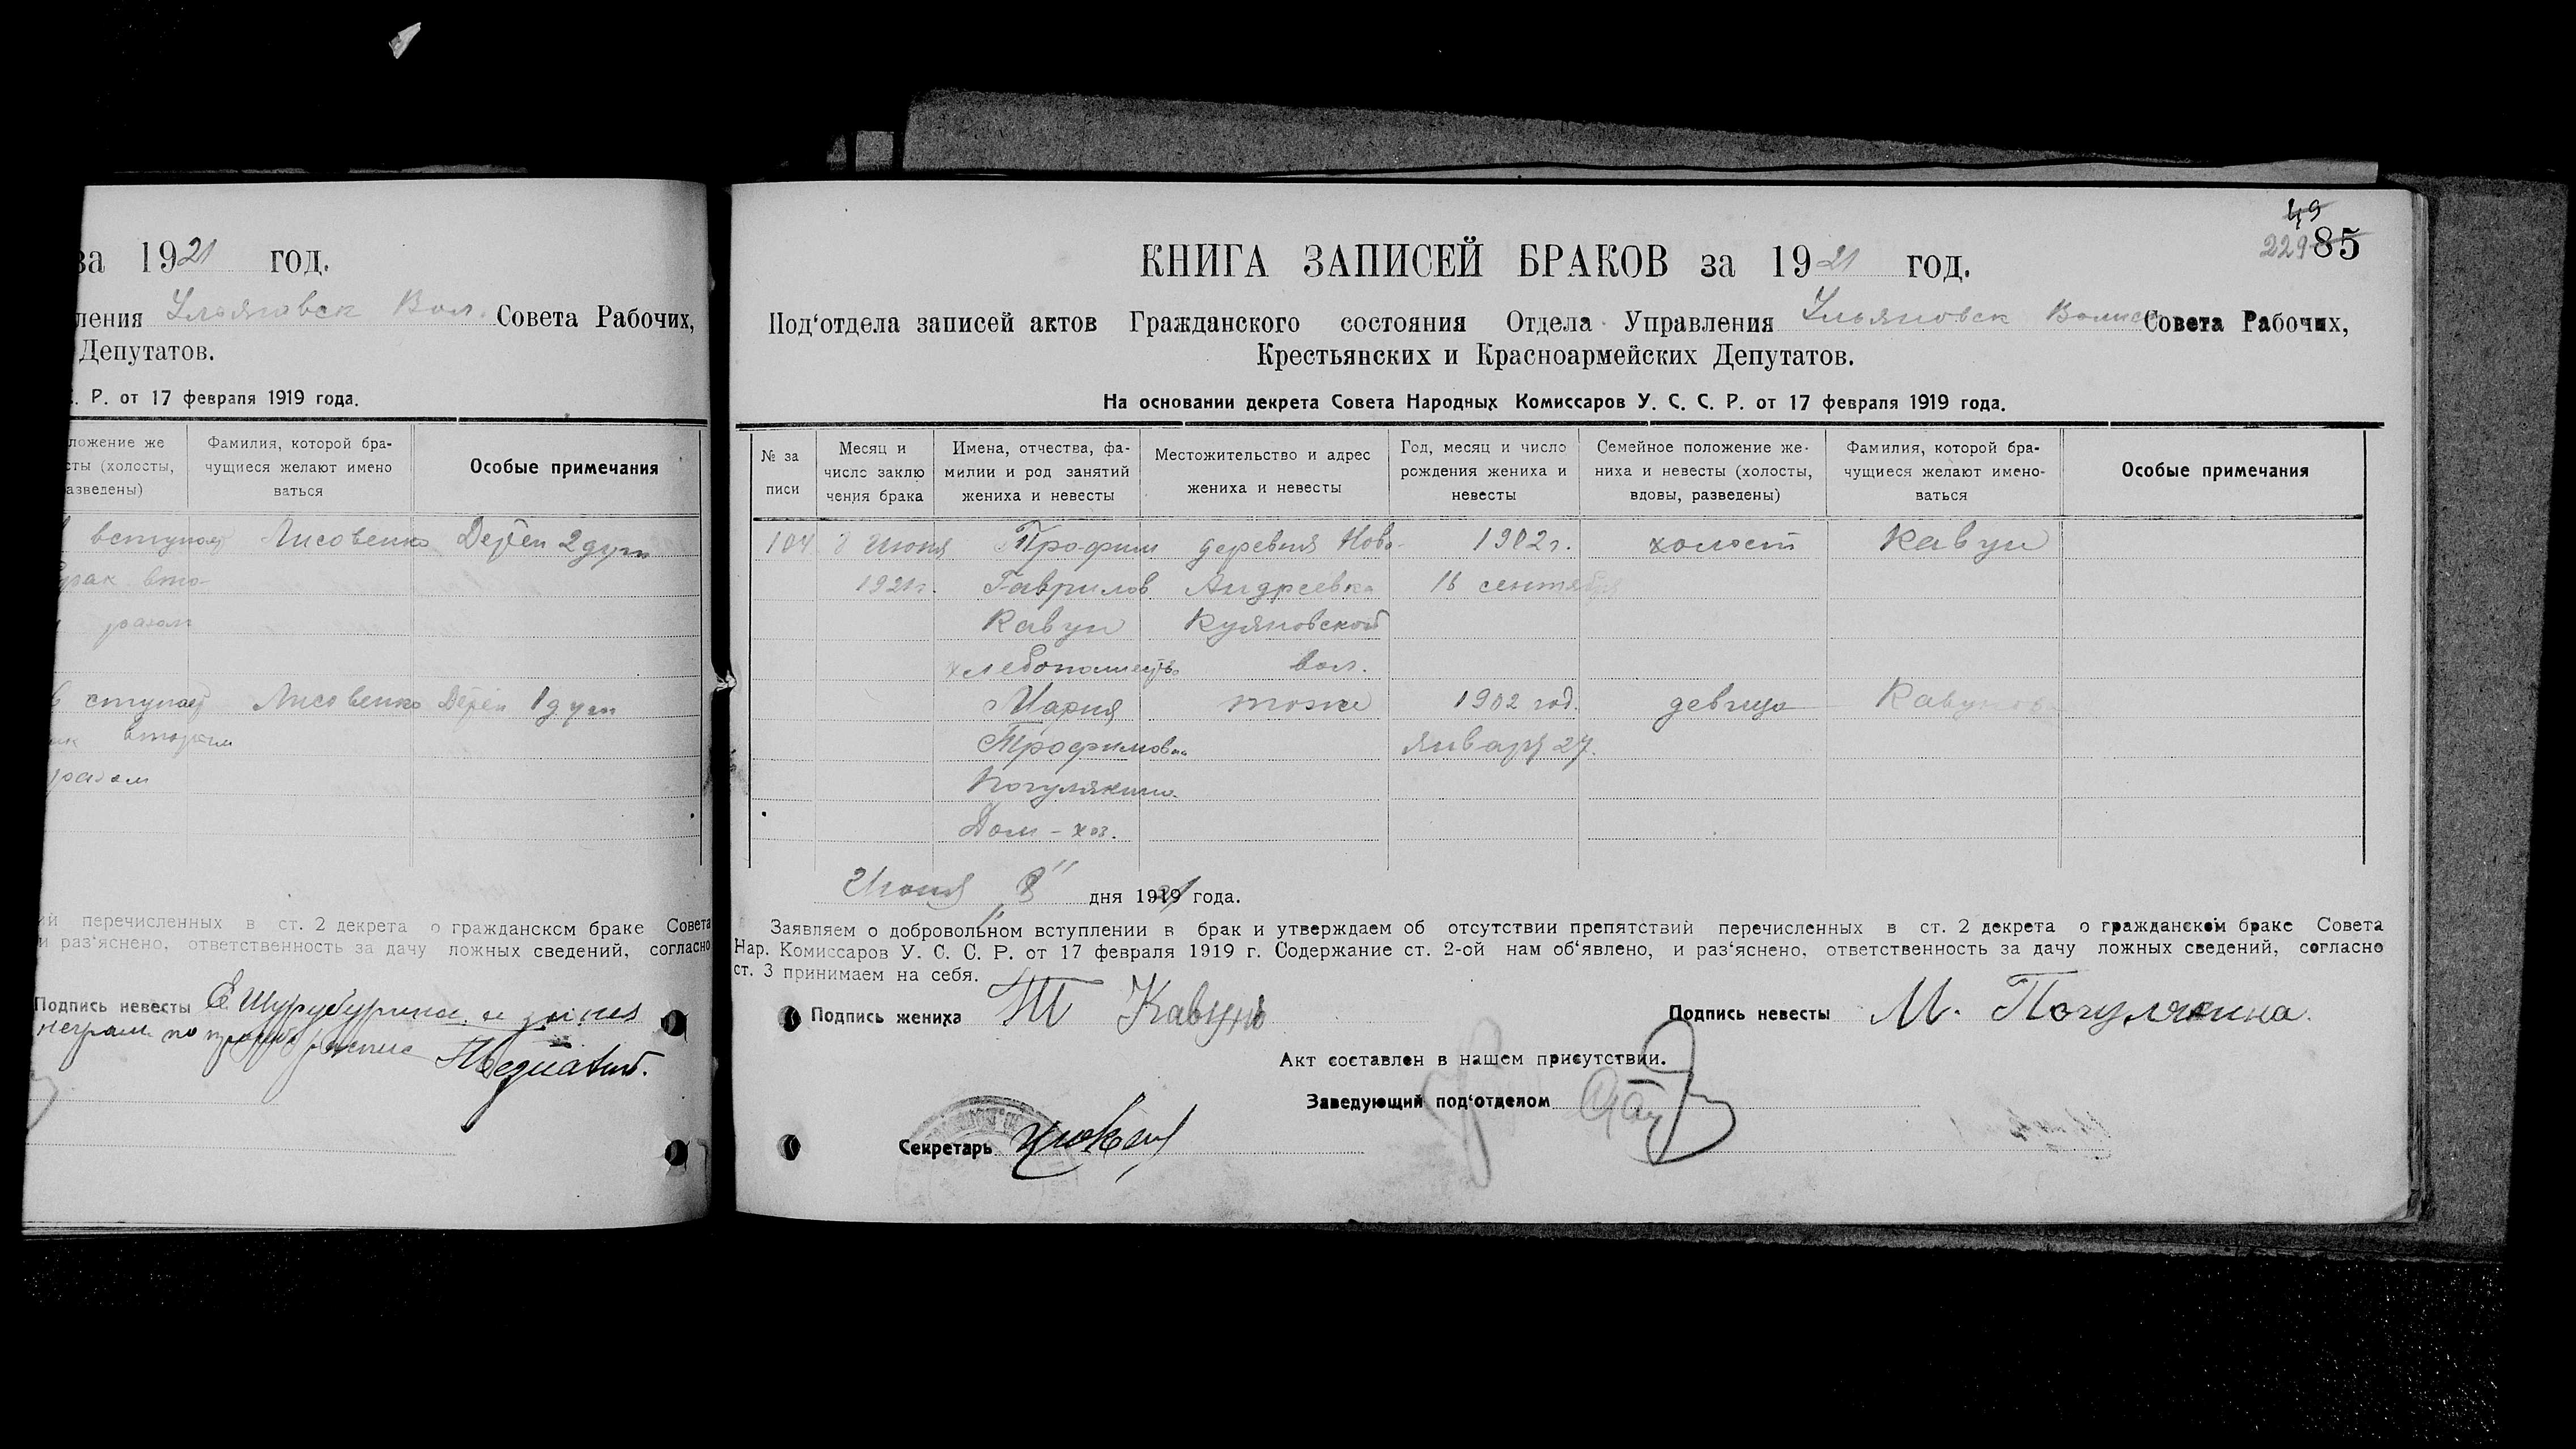 за 1921 год.
ления Ульяновск Вол. Совета Рабочих,
Депутатов.
С. Р. от 17 февраля 1919 года.
ложение же
сты (холосты,
азведены)
Фамилия, которой бра-
чущиеся желают имено
ваться
Особые примечания
вступает Лисовенко Детей 2 душ
брак вто-
разом
вступает Лисовенко Детей 1 душ
вторым
разом
ий перечисленных в ст. 2 декрета о гражданском браке Совета
и раз'яснено, ответственность за дачу ложных сведений, согласно
Подпись невесты Е. Шурубурина а за нея
неграм. по просьбе
49
229 85
КНИГА ЗАПИСЕЙ БРАКОВ за 1921 год.
Под'отдела записей актов Гражданского состояния Отдела Управления Ульяновск Волис Совета Рабочих,
Крестьянских и Красноармейских Депутатов.
На основании декрета Совета Народных Комиссаров У. С. С. Р. от 17 февраля 1919 года.
№ за
писи
Месяц и
число заклю
чения брака
Имена, отчества, фа-
милии и род занятий
жениха и невесты
Местожительство и адрес
жениха и невесты
Год, месяц и число
рождения жениха и
невесты
Семейное положение же-
ниха и невесты (холосты,
вдовы, разведены)
Фамилия, которой бра-
чущиеся желают имено-
ваться
Особые примечания
104 8 Июня Трофим деревня Ново- 1902 г. холост Кавун
1921 г. Гаврилов Андреевка 18 сентября
Кавун Куяновской
хлебопашец вол.
Мария тоже 1902 год. девица Кавунова
Трофимовна Января 27.
Погулякина
Дом-хоз.
Июня "8" дня 1921 года.
Заявляем о добровольном вступлении в брак и утверждаем об отсутствии препятствий перечисленных в ст. 2 декрета о гражданском браке Совета
Нар. Комиссаров У. С. С. Р. от 17 февраля 1919 г. Содержание ст. 2-ой нам об'явлено, и раз'яснено, ответственность за дачу ложных сведений, согласно
ст. 3 принимаем на себя.
Подпись жениха Т Кавунъ
Подпись невесты М. Погулякина.
Акт составлен в нашем присутствии.
Заведующий под'отделом
Секретарь